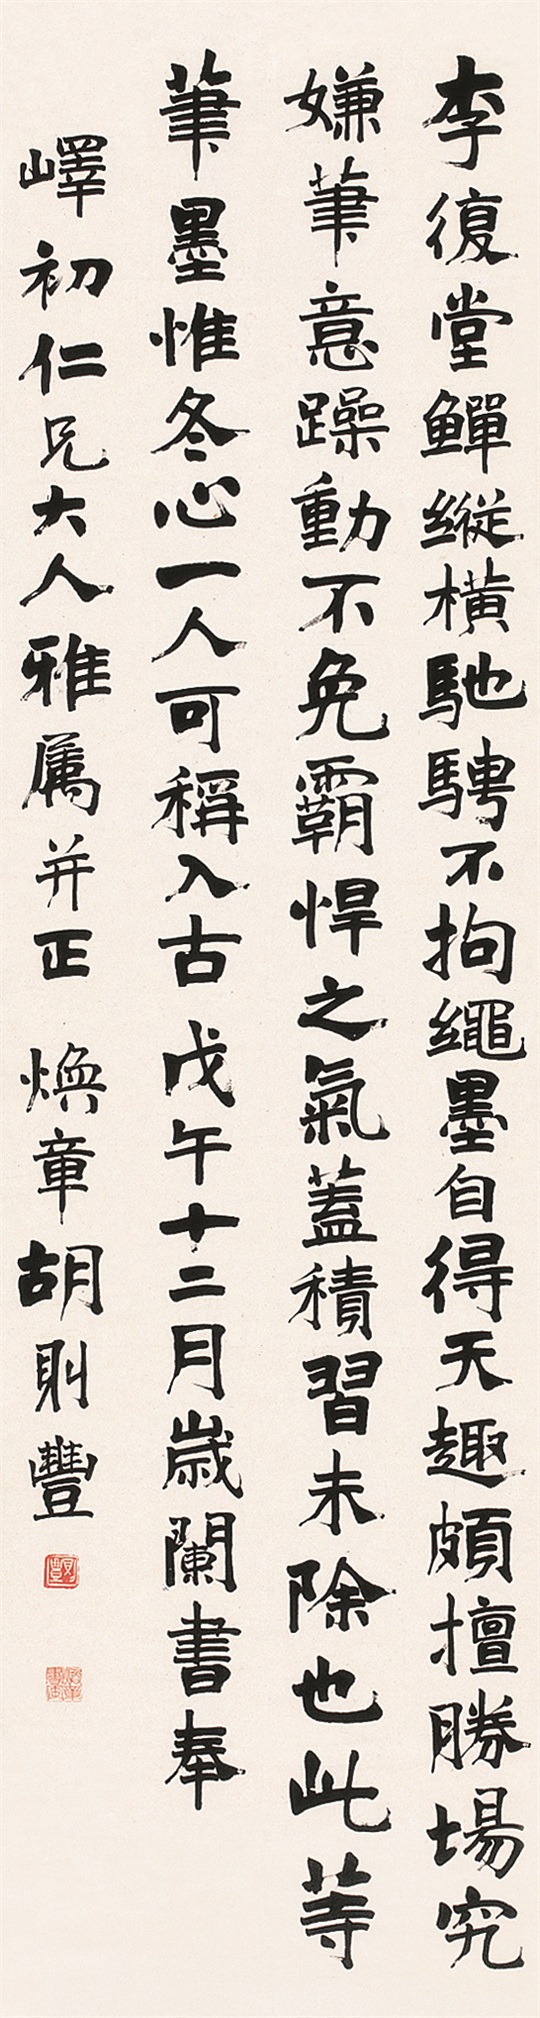 李復堂鱓縱橫馳騁不拘繩墨自得天趣頗擅勝場究
嫌筆意躁動不免霸悍之氣蓋積習未除也此等
筆墨惟冬心一人可稱入古戊午十二月歲闌書奉
嶧初仁兄大人雅属并正 煥章胡則豐